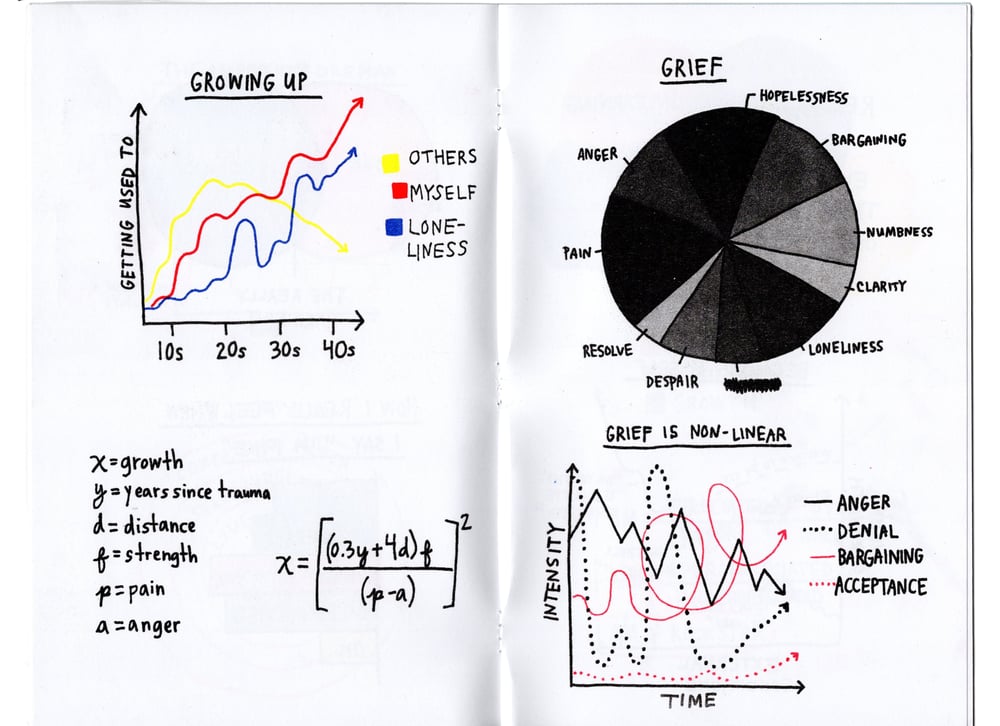 GROWING UP
GETTING USED TO
OTHERS
MYSELF
LONE-
LINESS
10s 20s 30s 40s
x=growth
y=years since trauma
d=distance
f=strength
p=pain
a=anger
x=[(0.3y+4d)f/(p-a)]²
GRIEF
HOPELESSNESS
BARGAINING
ANGER
NUMBNESS
PAIN
CLARITY
LONELINESS
RESOLVE
DESPAIR
GRIEF IS NON-LINEAR
INTENSITY
ANGER
DENIAL
BARGAINING
ACCEPTANCE
TIME